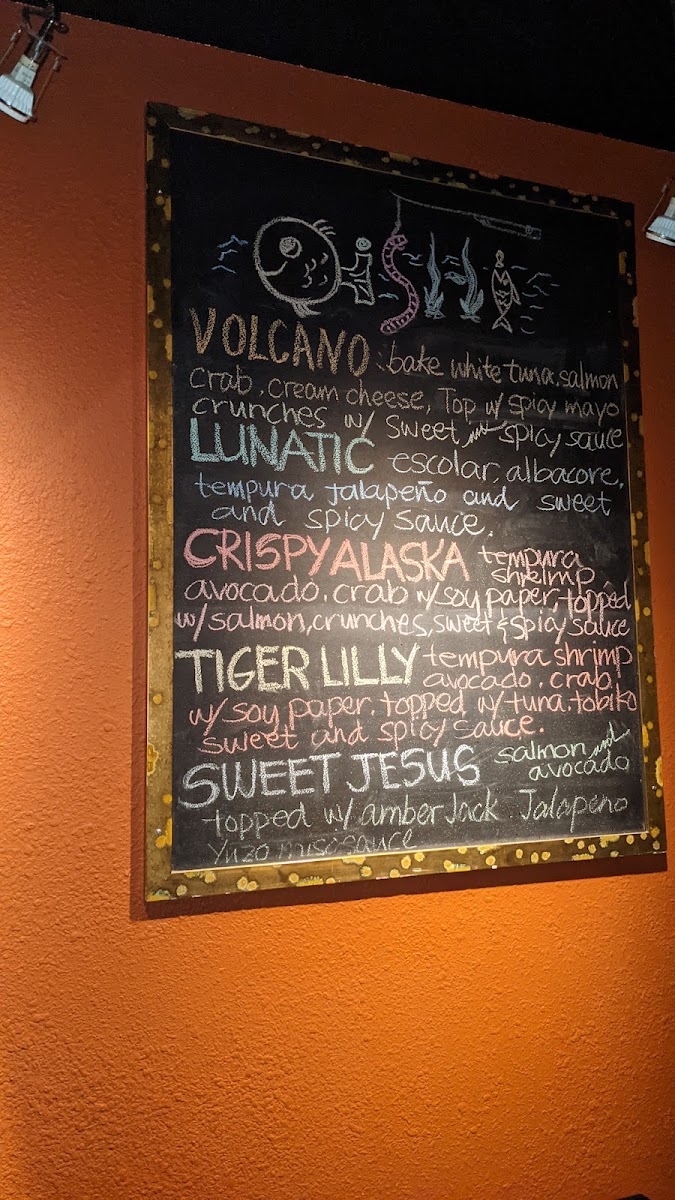 OiSHI
VOLCANO : bake white tuna, salmon
crab, cream cheese, Top w/ spicy mayo
crunches w/ sweet and spicy sauce
LUNATIC escolar, albacore,
tempura Jalapeño and sweet
and spicy sauce.
CRISPY ALASKA tempura
shrimp,
avocado, crab w/soy paper, topped
w/salmon, crunches, sweet & spicy sauce
TIGER LILLY tempura shrimp
avocado, crab,
w/ soy paper, topped w/ tuna, tobiko
sweet and spicy sauce.
SWEET JESUS salmon and
avocado
topped w/ amber Jack Jalapeno
Yuzo miso sauce